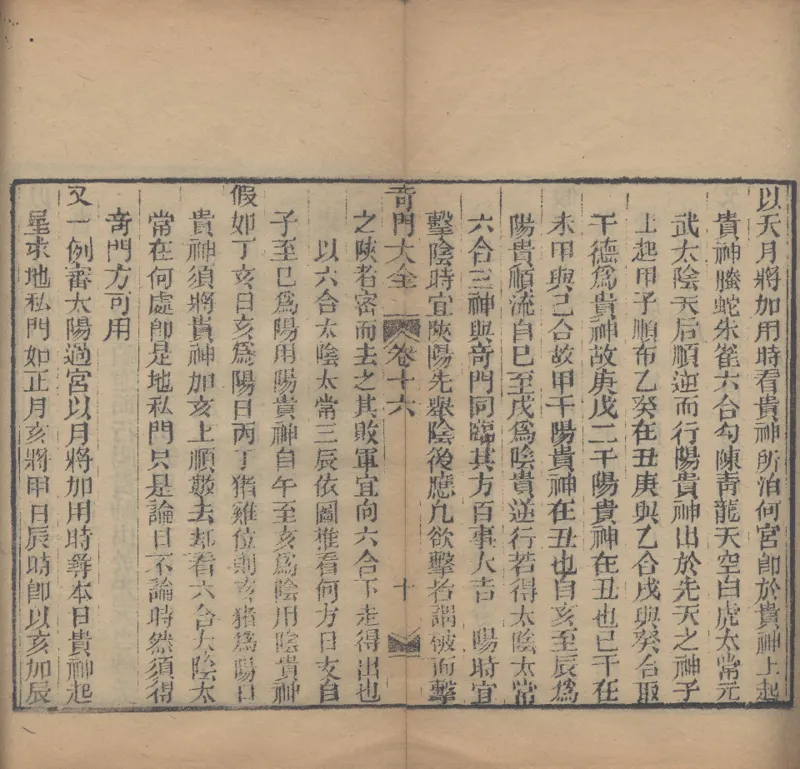 以天月將加用時看貴神所泊何宮即於貴神上起
貴神螣蛇朱雀六合勾陳靑龍天空白虎太常元
武太陰天后順逆而行陽貴神出於先天之神子
上起甲子順布乙癸在丑庚與乙合戌與癸合取
干德爲貴神故庚戊二干陽貴神在丑也己干在
未甲與己合故甲干陽貴神在丑也自亥至辰爲
陽貴順流自巳至戌爲陰貴逆行若得太陰太常
六合三神與奇門同臨其方百事大吉 陽時宜
擊陰時宜陝陽先舉陰後應凡欲擊者謂破而擊
奇門大全 卷十六 十
之陝者密而去之其敗軍宜向六合下走得出也
以六合太陰太常三辰依圖推看何方日支自
子至巳爲陽用陽貴神自午至亥爲陰用陰貴神
假如丁亥日亥爲陽日丙丁猪雞位則亥猪爲陽日
貴神須將貴神加亥上順數去却看六合太陰太
常在何處卽是地私門只是論日不論時然須得
奇門方可用
又一例審太陽過宮以月將加用時尋本日貴神起
星求地私門如正月亥將甲日辰時卽以亥加辰